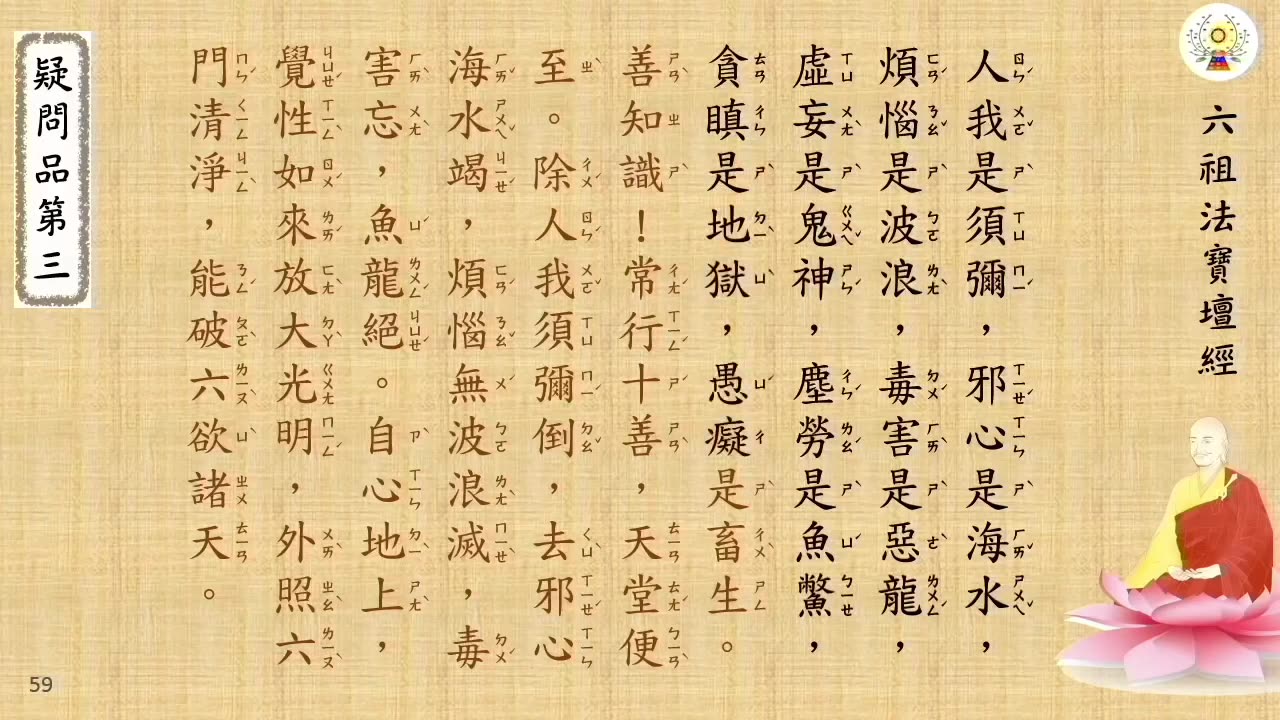 六祖法寶壇經
人我是須彌，邪心是海水，
煩惱是波浪，毒害是惡龍，
虛妄是鬼神，塵勞是魚鱉，
貪瞋是地獄，愚癡是畜生。
善知識！常行十善，天堂便
至。除人我須彌倒，去邪心
海水竭，煩惱無波浪滅，毒
害忘，魚龍絕。自心地上，
覺性如來放大光明，外照六
門清淨，能破六欲諸天。
疑問品第三
59